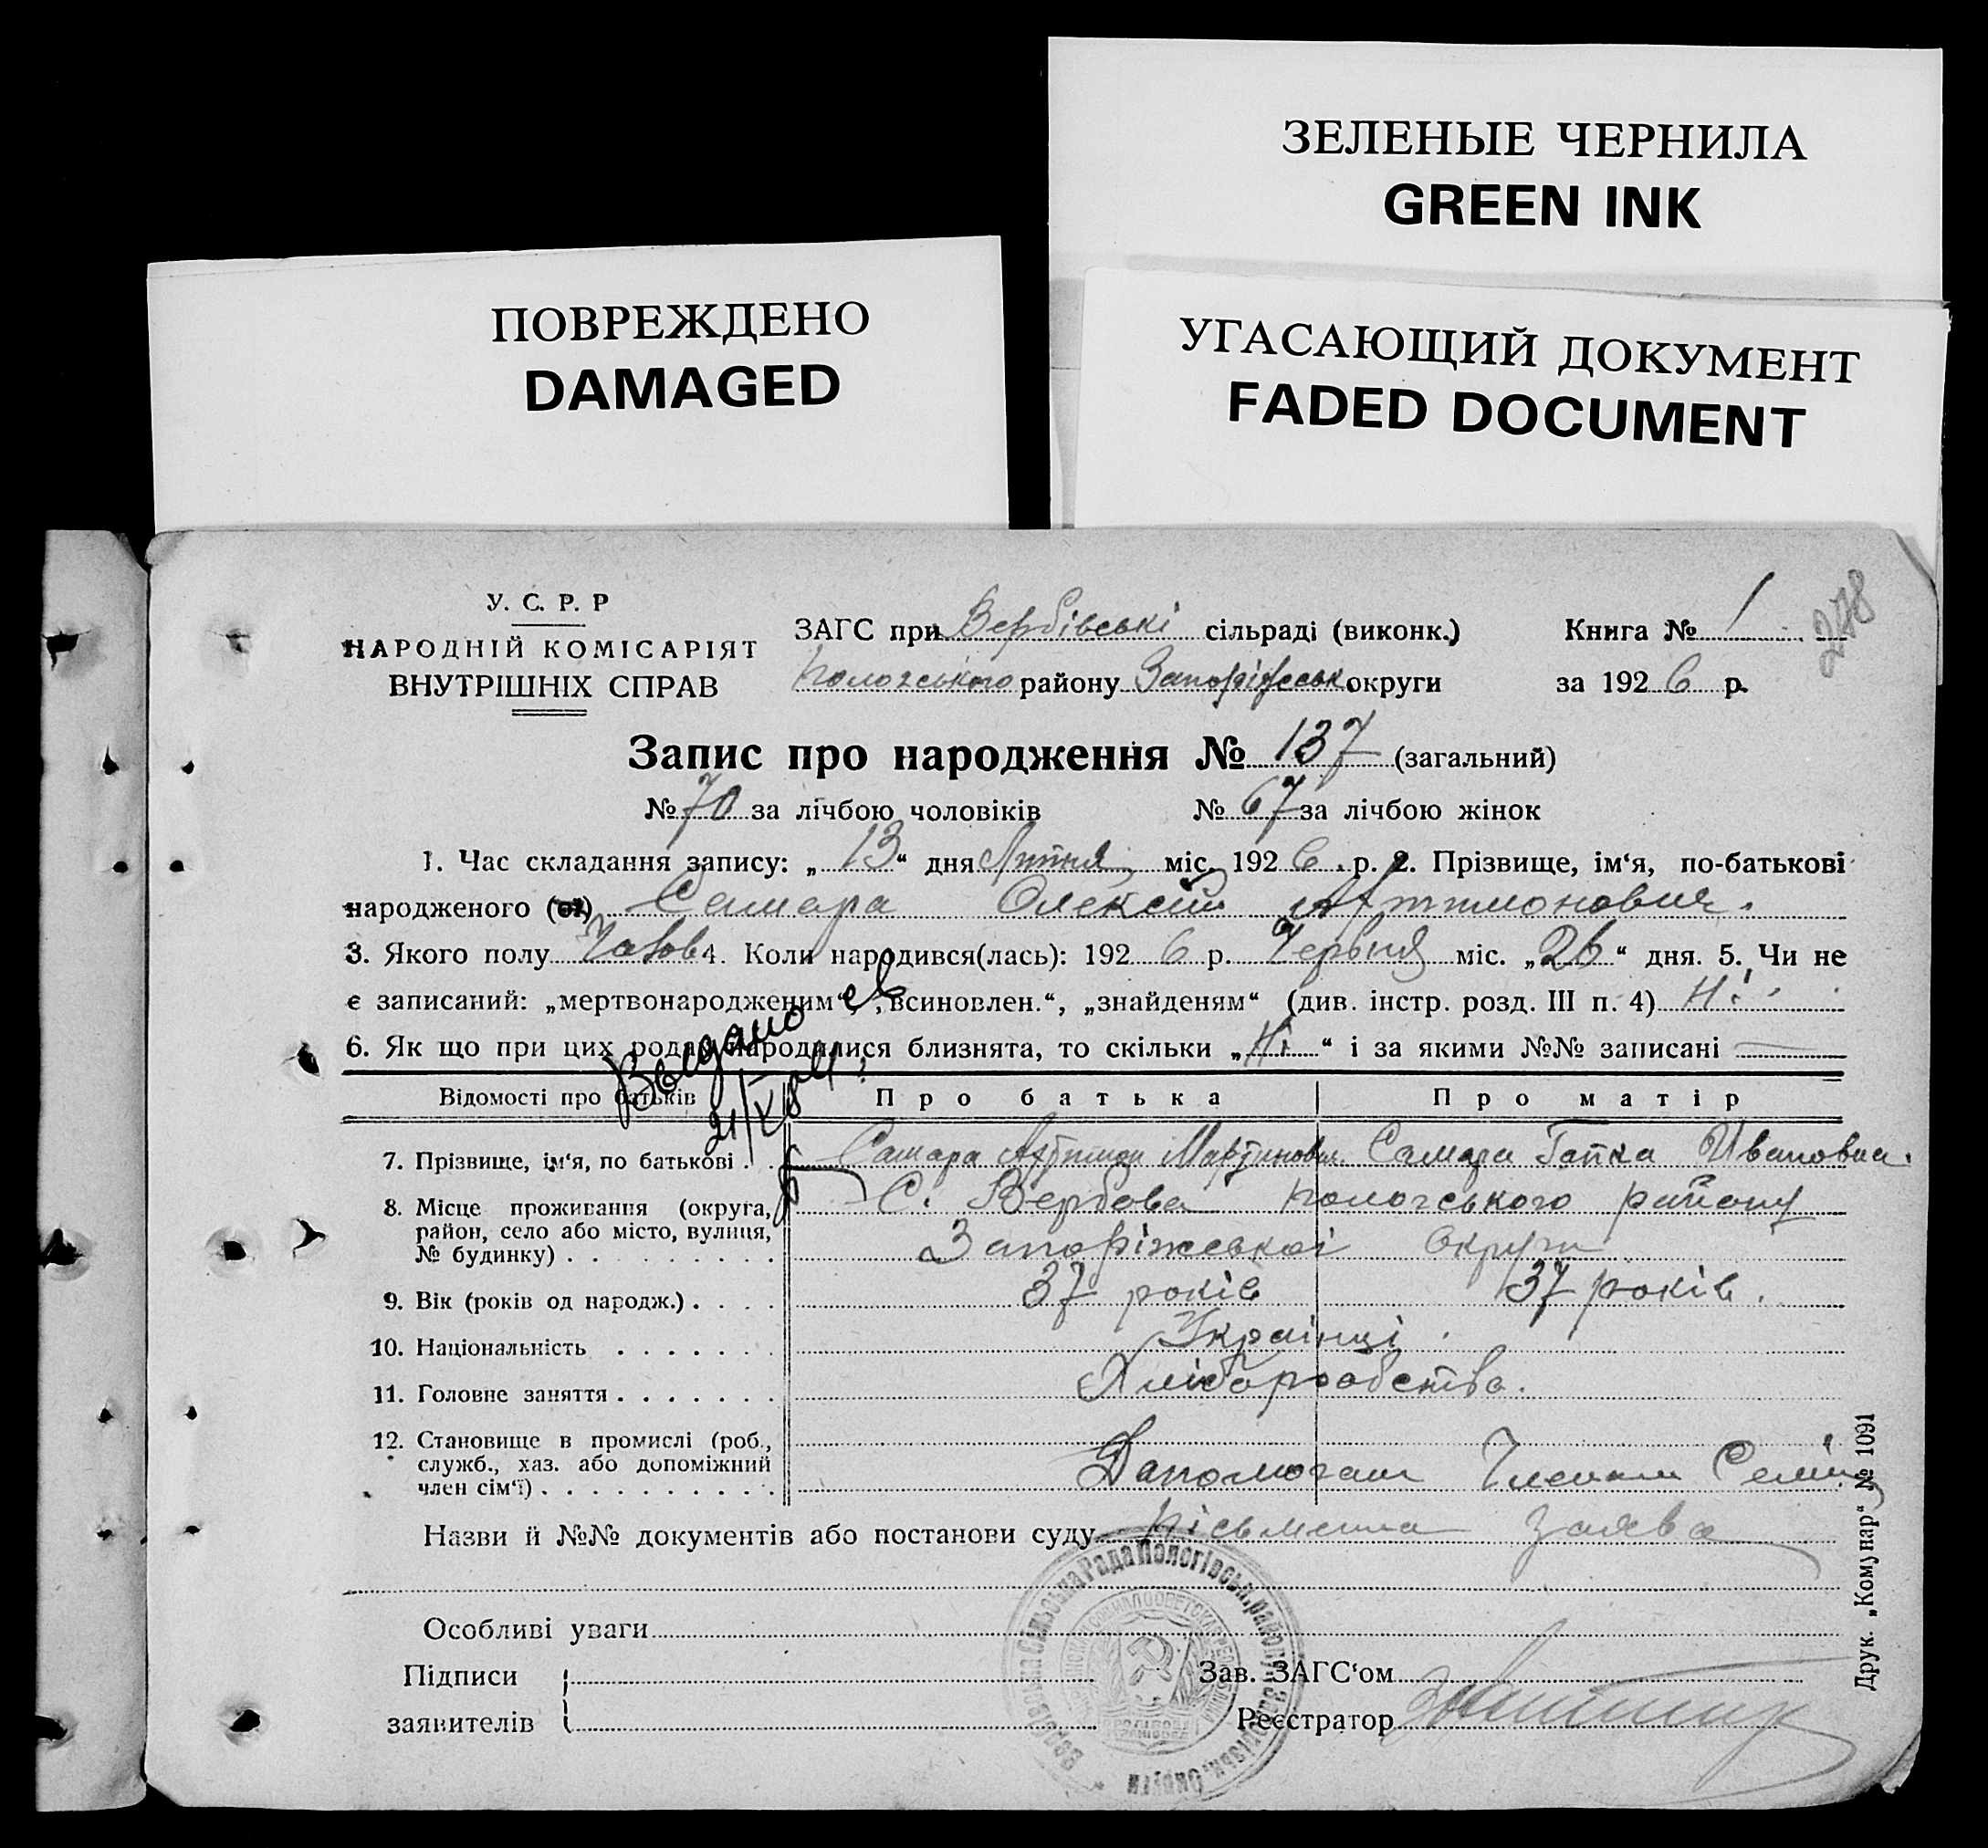 ЗЕЛЕНЫЕ ЧЕРНИЛА
GREEN INK
ПОВРЕЖДЕНО
DAMAGED
УГАСАЮЩИЙ ДОКУМЕНТ
FADED DOCUMENT
278
У. С. Р. Р
НАРОДНІЙ КОМІСАРІЯТ
ВНУТРІШНІХ СПРАВ
ЗАГС при Вербівські сільраді (виконк.) Книга № 1
Пологського району Запоріжськ округи за 1926 р.
Запис про народження № 137 (загальний)
№ 70 за лічбою чоловіків № 67 за лічбою жінок
1. Час складання запису: „13“ дня Липня міс. 1926 р. 2. Прізвище, ім‘я, по-батькові
народженого Самара Олексій Артимонович.
3. Якого полу Чолов 4. Коли народився(лась): 1926 р. Червня міс. „26“ дня. 5. Чи не
є записаний: „мертвонародженим“, „всиновлен.“, „знайденям“ (див. інстр. розд. III п. 4) Ні
6. Як що при цих родах народилися близнята, то скільки „Ні“ і за якими №№ записані —
Выдано
Відомості про батьків Про батька Про матір
7. Прізвище, ім‘я, по батькові Самара Мартинович Самара Гапка Ивановна.
8. Місце проживання (округа, район, село або місто, вулиця, № будинку) С. Вербова Пологського району
Запоріжської Округи
9. Вік (років од народж.) 37 років 37 років.
10. Національність Українці.
11. Головне заняття Хліборобство.
12. Становище в промислі (роб., служб., хаз. або допоміжний член сім‘ї) Членам Семї
Назви й №№ документів або постанови суду Письменна заява
Особливі уваги
Підписи
заявителів
Зав. ЗАГС‘ом
Реєстратор
Сільська Рада Пологівськ. району Запорізьк. Округи
Друк. „Комунар“ № 1091